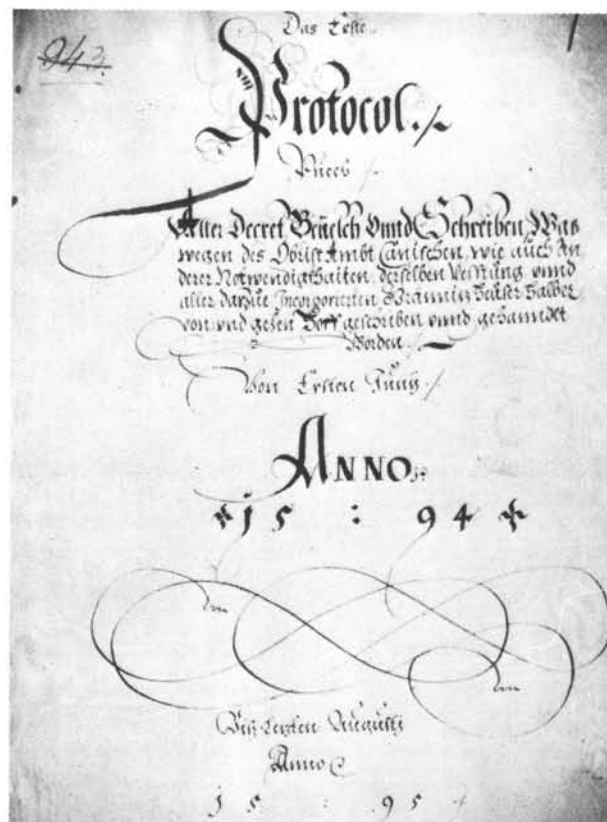 943.
Das Erste
Protocol./
Puech /
Aller Decret Beuelch Vnnd Schreiben, Was
wegen des Obrist Ambt Canischen, wie auch An
derer Notwendigkhaiten, derselben Vestung vnnd
aller darzue Incorporierten Gräniz heüser halber
von vnd gehen Hoff geschriben vnnd gehanndlt
Worden /
Von Ersten Junÿ /
ANNO
15 : 94
Biß Letzten Augusti
Anno
15 : 95